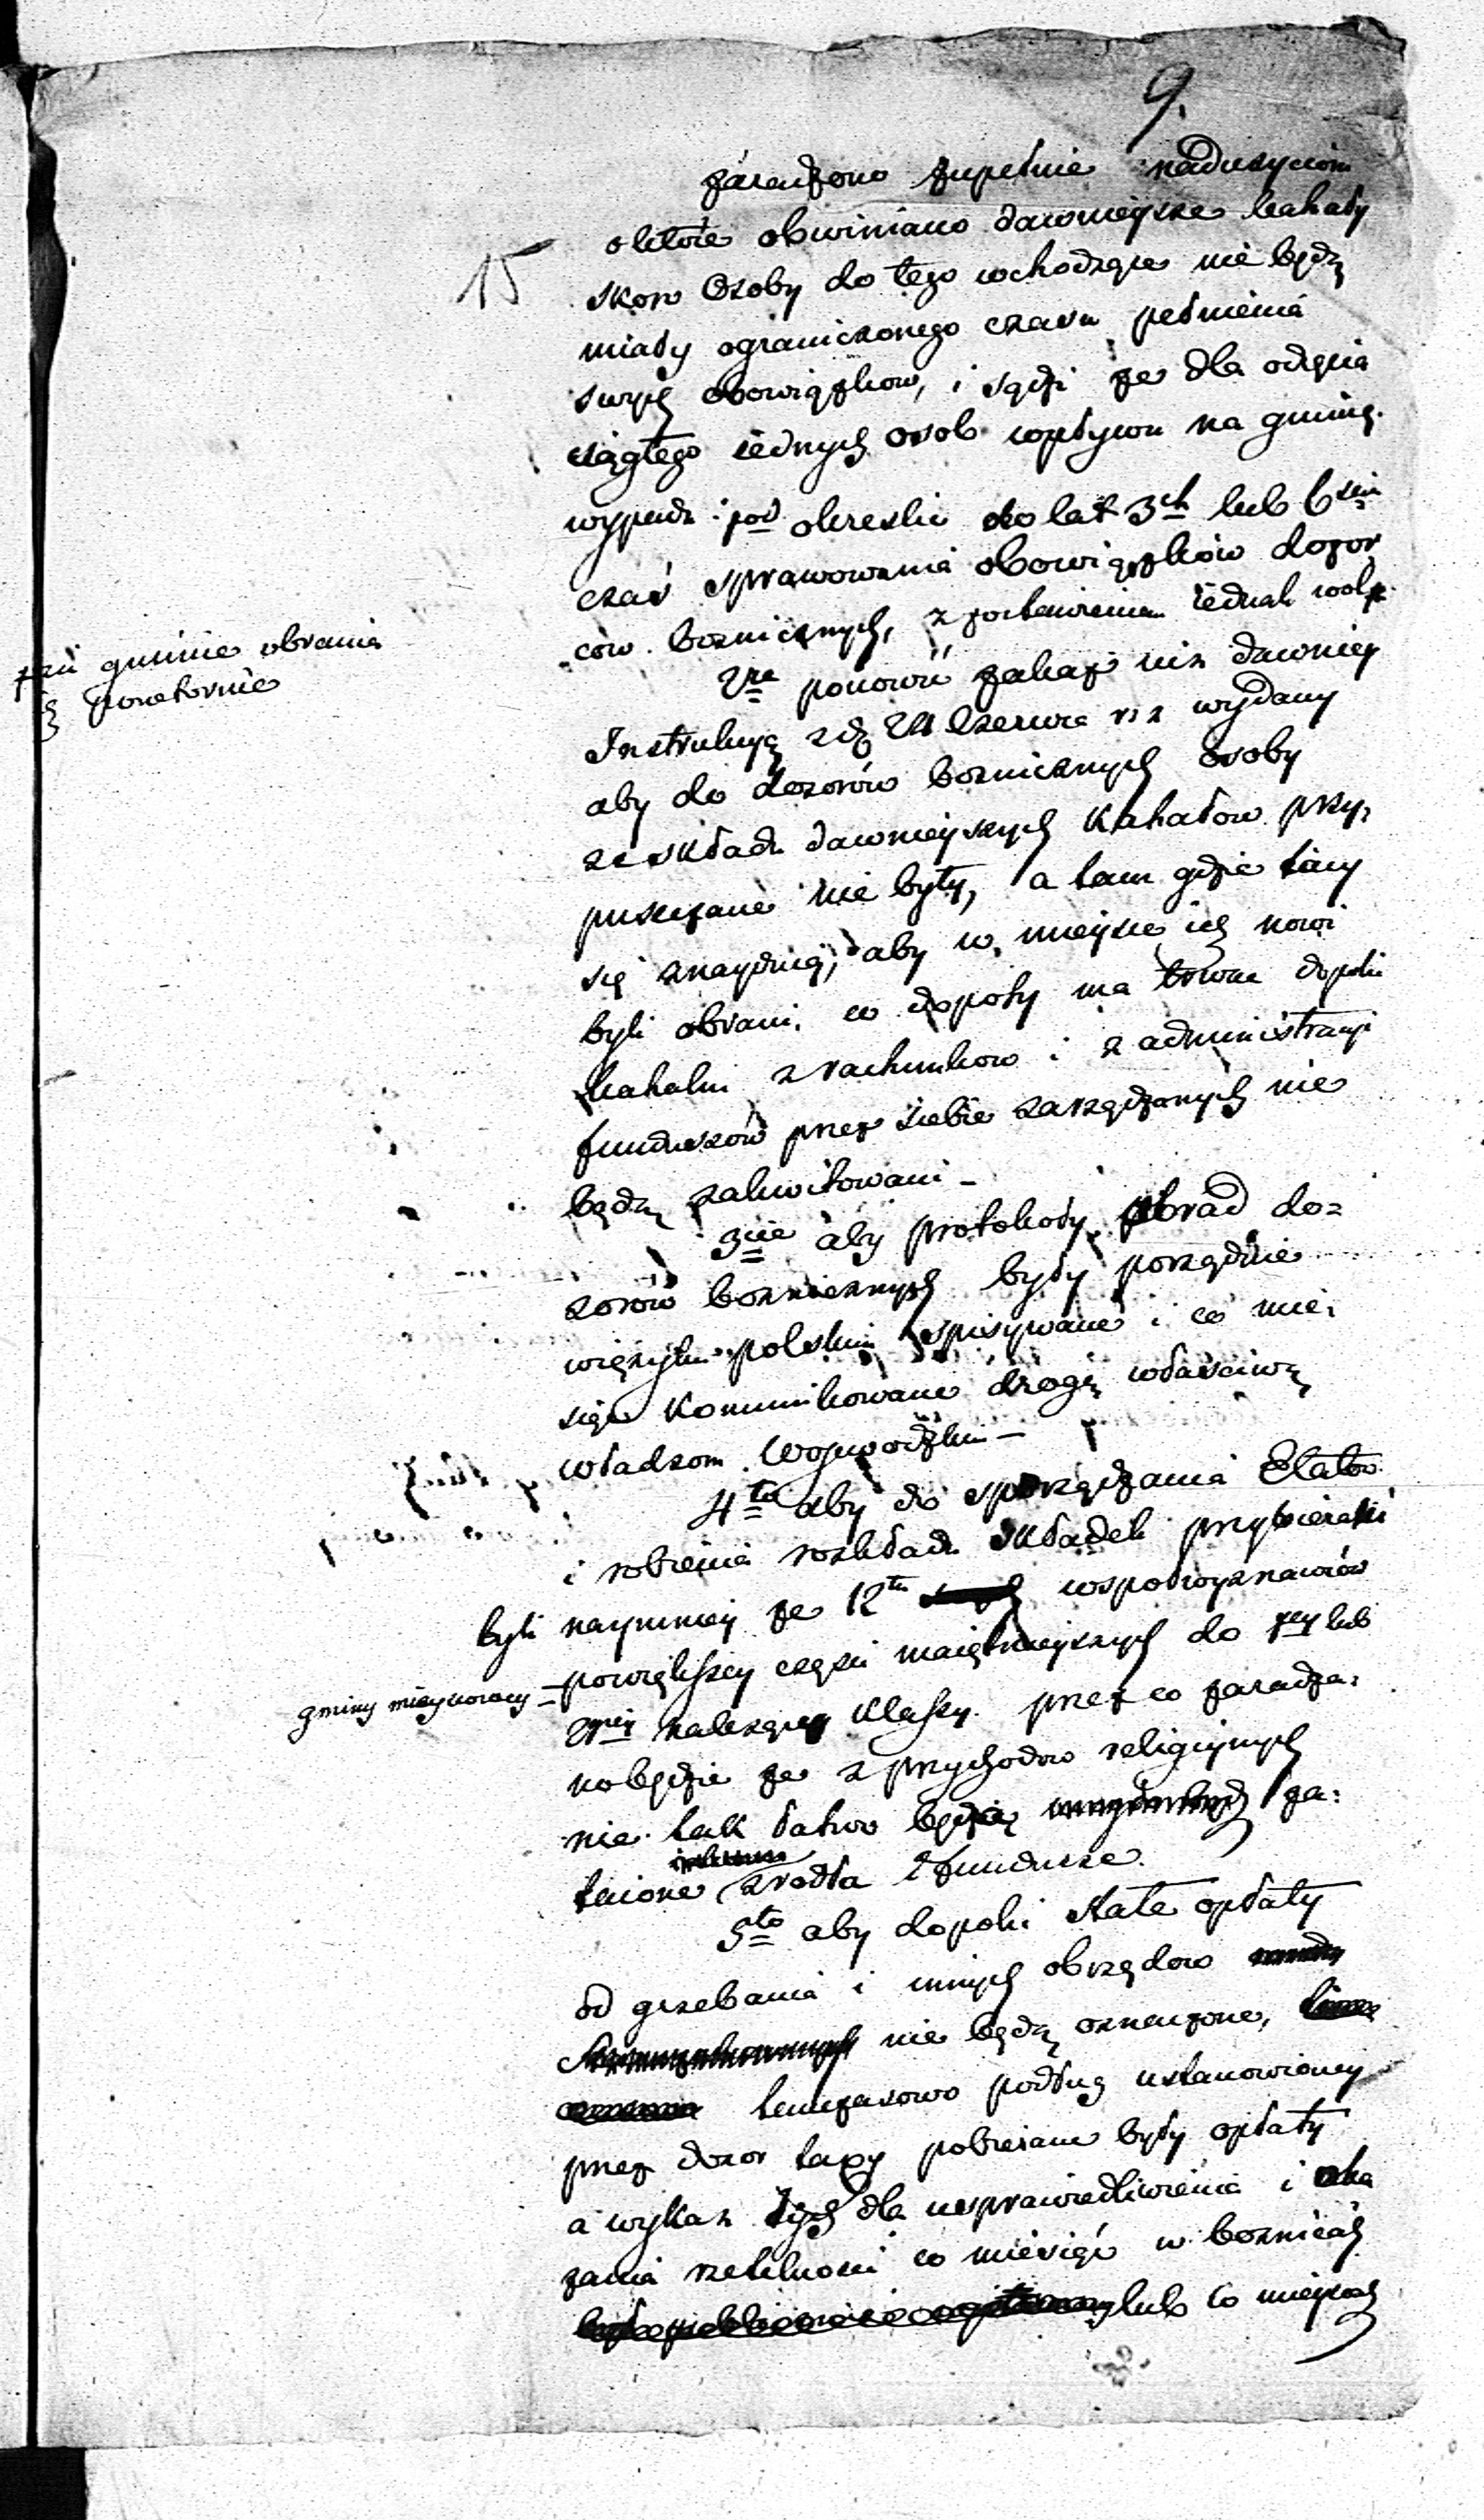 9.
zaradzono zupełnie nadużyciom
o które obwiniano dawnieysze kahały
15
skoro Osoby do tego wchodzące nie będą
miały ograniczonego czasu pełnienia
swych obowiązkow, i sądzi że dla odięcia
ciągłego iednych osob wpływu na gminę
wypada: 1od okreslić do lat 3ch lub 6ciu
czas sprawowania obowiązków dozor
ców boznicznych, z zostawieniem iednak woln.
przi gminie obrania
ich powtornie
2re ponowić zakaz iuz dawniey
Instrukcyą z dn 24 Czerwca wydany
aby do dozorów boznicznych osoby
ze składu dawnieyszych Kahałow przy,
puszczane nie były, a tam gdzie tacy
się znayduią, aby w mieysce ich nowi
byli obrani, co dopoty ma trwac dopoki
kahalni z rachunkow i z administracyi
funduszów przez siebie zarządzanych nie
będą zakwitowani –
3cie aby protokoły obrad do=
zorów boznicznych były porządnie
w ięzyku polskim spisywane i co mie,
siąc Komunikowane drogą własciwą
władzom Woiewodzkim –
4to aby do sporządzania Etatow
i robienia rozkładu składek przybierani
byli naymniey ze 12tu wspołwyznawców
powiększey częsci maiętnieyszych do 1ey lub
gminy mieyscowey –
2giey nalezących Klassy. przez co zaradza:
no będzie że z przychodow religiynych
nie tak łatwo będą za:
taione zrodła i fundusze.
5to aby dopoki stałe opłaty
od grzebania i innych obrzędow
nie będą oznaczone,
tymczasowo podług ustanowioney
przez dozor taxy pobierane były opłaty
a wykaz tych dla usprawiedliwienia i oka
zania rzetelnosci co miesiąc w boznicach
lub co mieysca